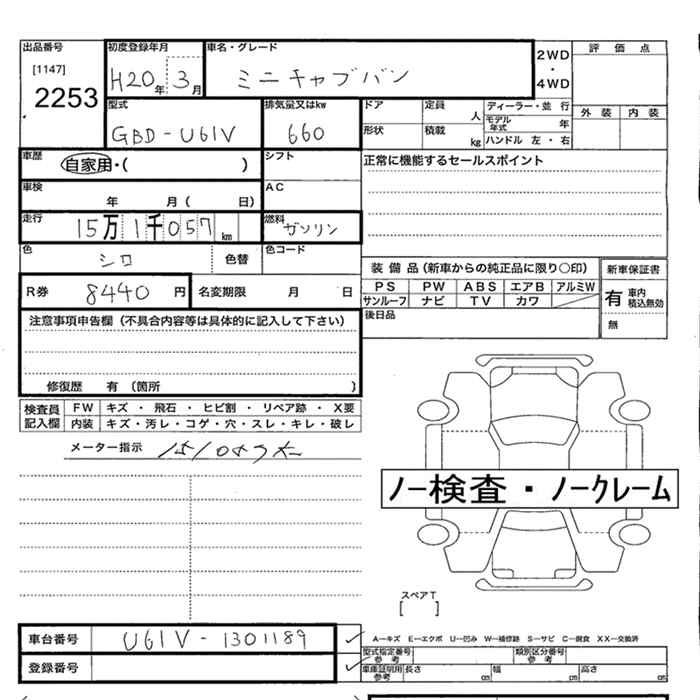 出品番号 初度登録年月 車名・グレード 2WD・4WD 評価点
[1147] 2253 H20年 3月 ミニキャブバン
外装 内装
型式 排気量又はkw ドア 定員 人 ディーラー・並行
GBD-U61V 660 モデル年式 年
形状 積載 kg ハンドル 左・右
車歴 自家用・( ) シフト 正常に機能するセールスポイント
車検 年 月( 日) AC
走行 15万1千057km 燃料 ガソリン
色 シロ 色替 色コード
装備品(新車からの純正品に限り〇印) 新車保証書
R券 8440円 名変期限 月 日
PS PW ABS エアB アルミW 有 車内 積込無効
サンルーフ ナビ TV カワ
後日品 無
注意事項申告欄(不具合内容等は具体的に記入して下さい)
修復歴 有(箇所 )
検査員記入欄 FW キズ・飛石・ヒビ割・リペア跡・X要
内装 キズ・汚レ・コゲ・穴・スレ・キレ・破レ
メーター指示
ノー検査・ノークレーム
スペアT
[ ]
車台番号 U61V-1301189
A―キズ E―エクボ U―凹み W―補修跡 S―サビ C―腐食 XX―交換済
登録番号
型式指定番号 参考 類別区分番号 参考
車庫証明用 参考 長さ cm 幅 cm 高さ cm